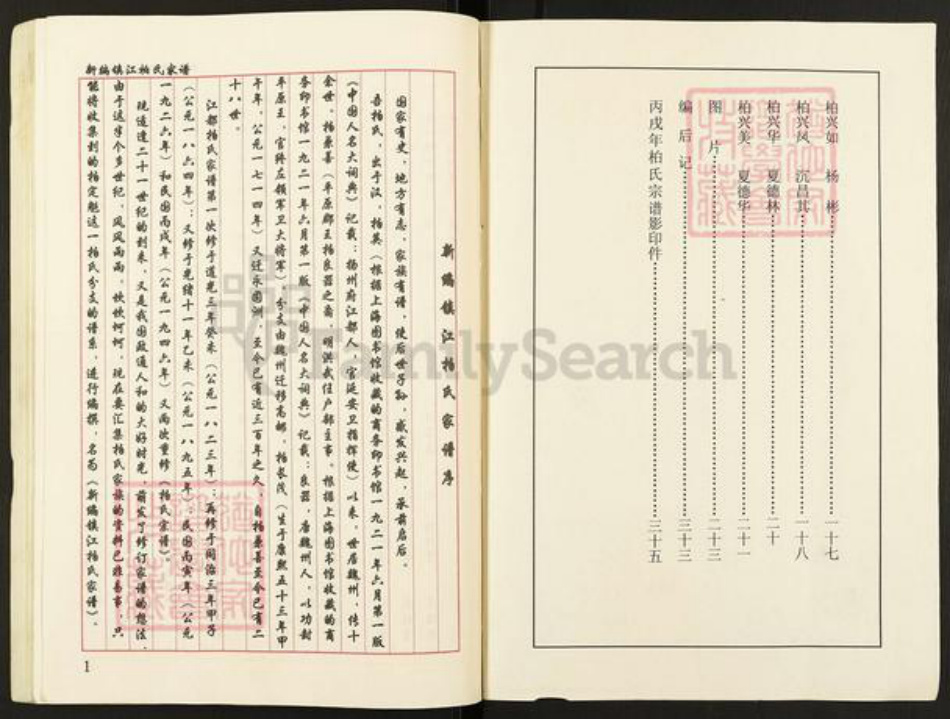 柏兴如 杨彬……一十七
柏兴凤 沉昌其……一十八
柏兴华 夏德林……二十
柏兴美 夏德华……二十一
图片……二十三
编后记……三十三
丙戌年柏氏宗谱影印件……三十五
新编镇江柏氏家谱
新编镇江柏氏家谱序
国家有史，地方有志，家族有谱，使后世子孙，感发兴起，承前启后。
吾柏氏，出于汉，柏英（根据上海图书馆收藏的商务印书馆一九二一年六月第一版
《中国人名大词典》记载：扬州府江都人，官延安卫指挥使）以来，世居魏州，传十
余世。柏良善（平原郡王柏良器之裔，明洪武任户部主事。根据上海图书馆收藏的商
务印书馆一九二一年六月第一版《中国人名大词典》记载：良器，唐魏州人，以功封
平原王，官终左领军卫大将军）。分支由魏州迁移高邮，柏长茂（生于康熙五十三年甲
午年，公元一七一四年）又迁永固洲，至今已有近三百年之久，自柏良善至今已有二
十八世。
江都柏氏家谱第一次修于道光三年癸未（公元一八二三年）；再修于同治三年甲子
（公元一八六四年）；又修于光绪十一年乙未（公元一八九五年）；民国丙寅年（公元
一九二六年）和民国丙戌年（公元一九四六年）又两次重修《柏氏宗谱》。
现适逢二十一世纪的到来，又是我国政通人和的大好时光，萌发了修订家谱的想法，
由于这半个多世纪，风风雨雨，坎坎坷坷，现在要汇集柏氏家族的资料已非易事，只
能将收集到的柏定魁这一柏氏分支的谱系，进行编撰，名为《新编镇江柏氏家谱》。
1
FamilySearch